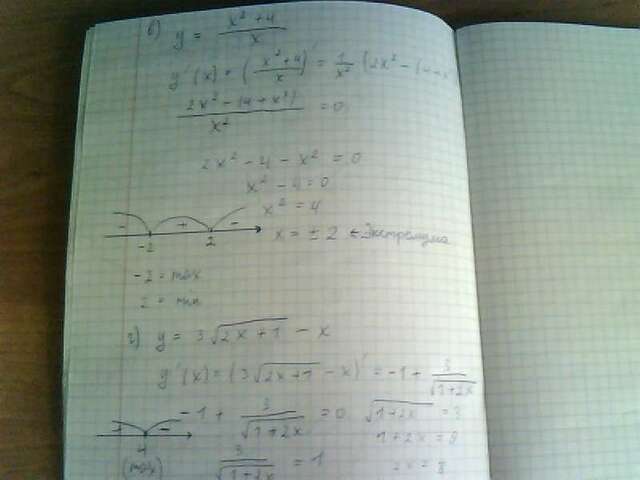 б) y = (x² + 4)/x
y'(x) = ((x² + 4)/x)' = 1/x² (2x² - (4 + x
(2x² - (4 + x²))/x² = 0
2x² - 4 - x² = 0
x² - 4 = 0
x² = 4
- + -
-2 2
x = ± 2 ← Экстремума
-2 = max
2 = min
г) y = 3√(2x + 1) - x
y'(x) = (3√(2x + 1) - x)' = -1 + 3/√(1 + 2x)
-1 + 3/√(1 + 2x) = 0
√(1 + 2x) = 3
1 + 2x = 9
2x = 8
3/√(1 + 2x) = 1
+ -
4
(max)